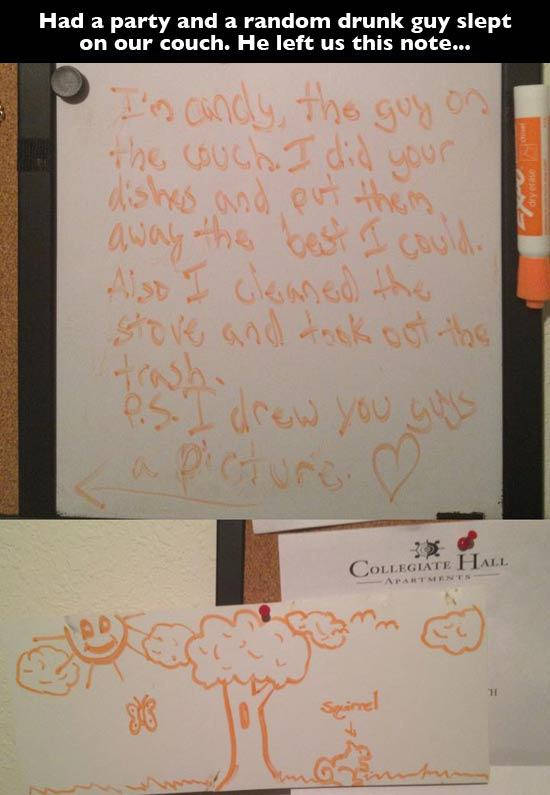 Had a party and a random drunk guy slept
on our couch. He left us this note...
I'm candy, the guy on
the couch. I did your
dishes and put them
away the best I could.
Also I cleaned the
stove and took out the
trash.
P.S. I drew you guys
a picture.
EXPO
dry erase
COLLEGIATE HALL
APARTMENTS
Squirrel